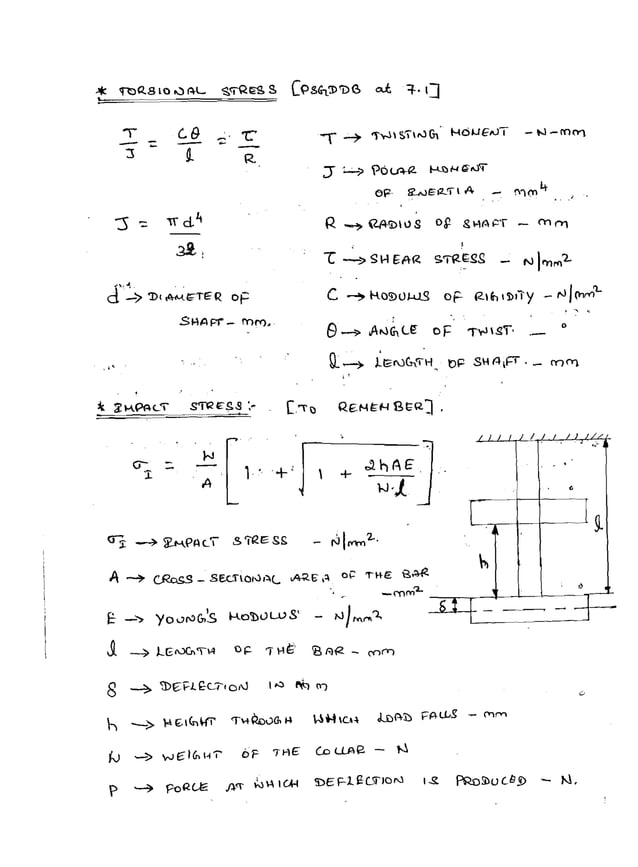 * TORSIONAL STRESS [PSGDDB at 7.1]
T/J = Cθ/l = τ/R
T → TWISTING MOMENT - N-mm
J → POLAR MOMENT
OF INERTIA - mm⁴
J = πd⁴/32
R → RADIUS OF SHAFT - mm
τ → SHEAR STRESS - N/mm²
d → DIAMETER OF
SHAFT - mm.
C → MODULUS OF RIGIDITY - N/mm²
θ → ANGLE OF TWIST. - °
l → LENGTH OF SHAFT. - mm
* IMPACT STRESS:- [TO REMEMBER].
σI = W/A [1 + √(1 + 2hAE/W.l)]
σI → IMPACT STRESS - N/mm².
A → CROSS-SECTIONAL AREA OF THE BAR
- mm²
E → YOUNG'S MODULUS - N/mm²
l → LENGTH OF THE BAR - mm
δ → DEFLECTION IN mm
h → HEIGHT THROUGH WHICH LOAD FALLS - mm
W → WEIGHT OF THE COLLAR - N
P → FORCE AT WHICH DEFLECTION IS PRODUCED - N.
l
h
δ